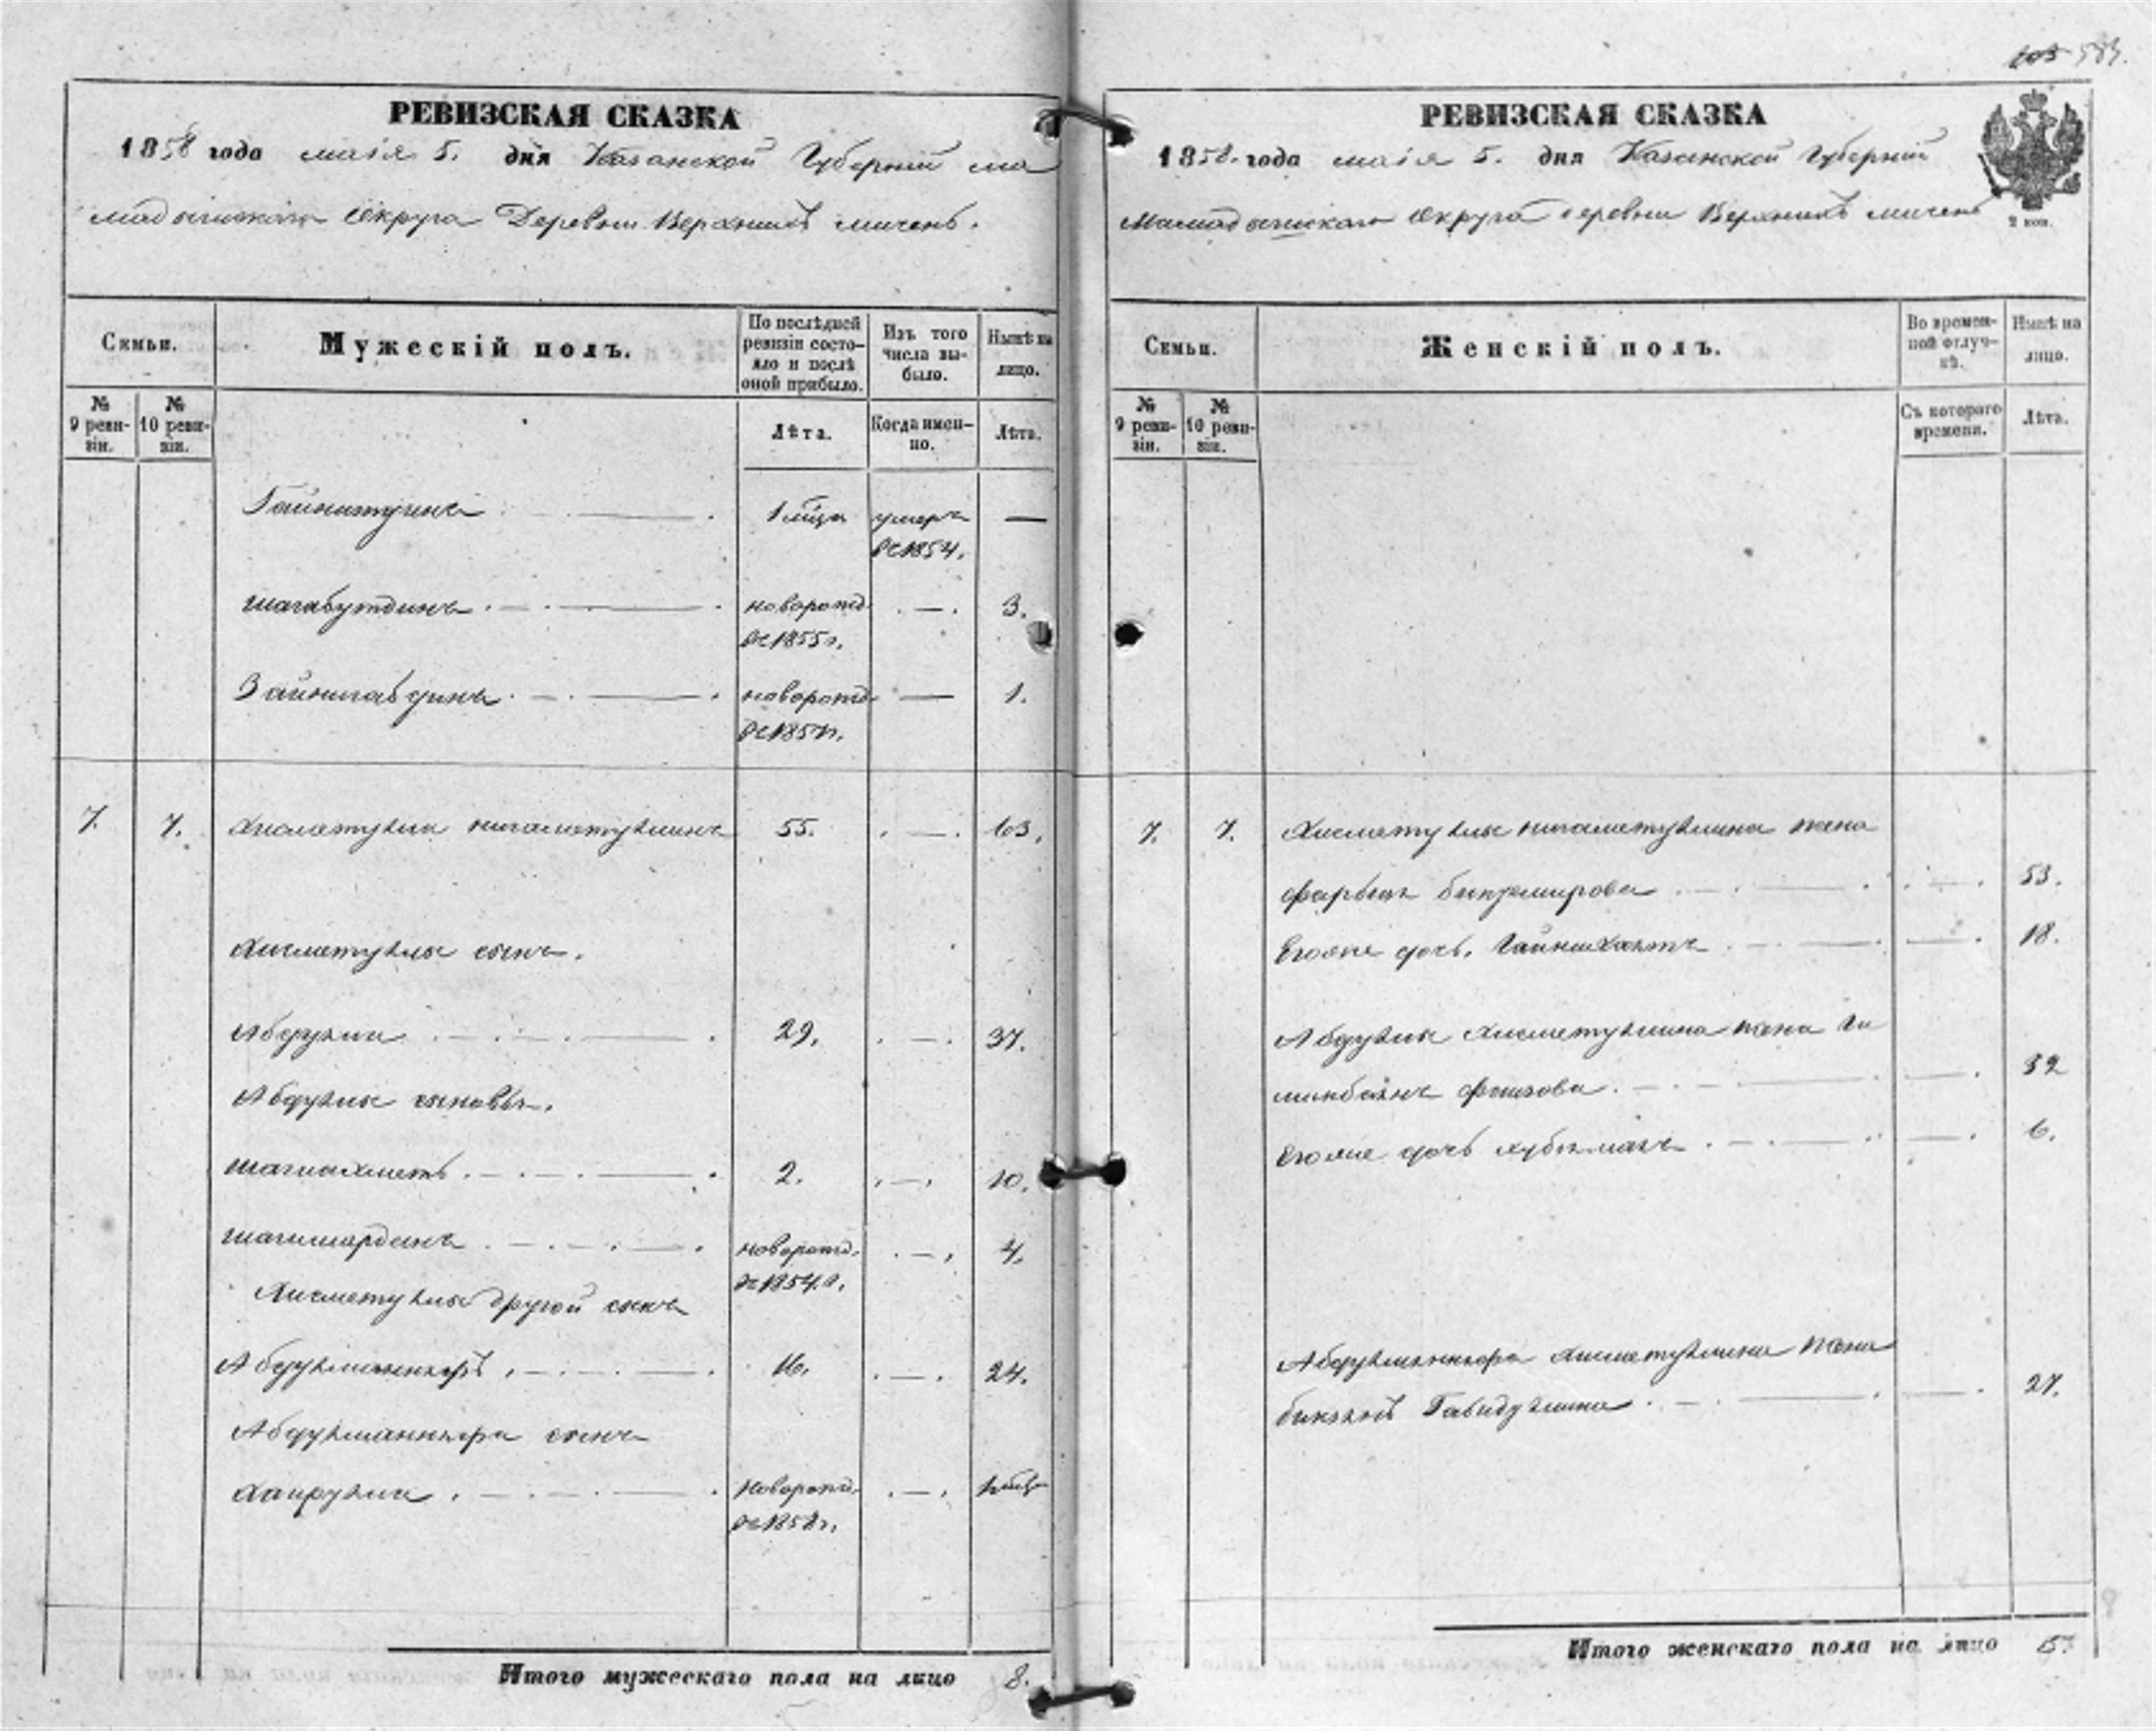 583.
РЕВИЗСКАЯ СКАЗКА
1858 года маія 5. дня Казанской Губерніи ма
мадышскаго Округа Деревни Верхнихъ мичень.
Семьи.
Мужескій полъ.
По послѣдней ревизіи состояло и послѣ оной прибыло.
Изъ того числа выбыло.
Нынѣ на лицо.
№ 9 ревизіи.
№ 10 ревизіи.
Лѣта.
Когда именно.
Лѣта.
1 мѣца умеръ —
въ 1854.
Шагабутдинъ новорожд. 3.
въ 1855 г.
новорожд. — 1.
въ 1857 г.
7. 7. Хисметулла нигаметуллинъ 55. 63.
Хисметуллы сынъ.
Абдулла 29. 37.
Абдуллы сыновья.
Шагиахметъ 2. 10.
Шагимарданъ новорожд. 4.
въ 1854 г.
Хисметуллы другой сынъ
16. 24.
сынъ
Хайрулла новорожд.
въ 1858 г.
Итого мужескаго пола на лицо 8.
РЕВИЗСКАЯ СКАЗКА
1858. года маія 5. дня Казанской Губерніи
Мамадышскаго Округа деревни Верхнихъ мичень
2 коп.
Семьи.
Женскій полъ.
Во временной отлучкѣ.
Нынѣ на лицо.
№ 9 ревизіи.
№ 10 ревизіи.
Съ котораго времени.
Лѣта.
7. 7. Хисметуллы нигаметуллина жена
Биктемирова 53.
Егоже дочь. 18.
Абдуллы Хисметуллина жена
32
Егоже дочь 6.
Хисметуллина жена
27.
Итого женскаго пола на лицо 5.